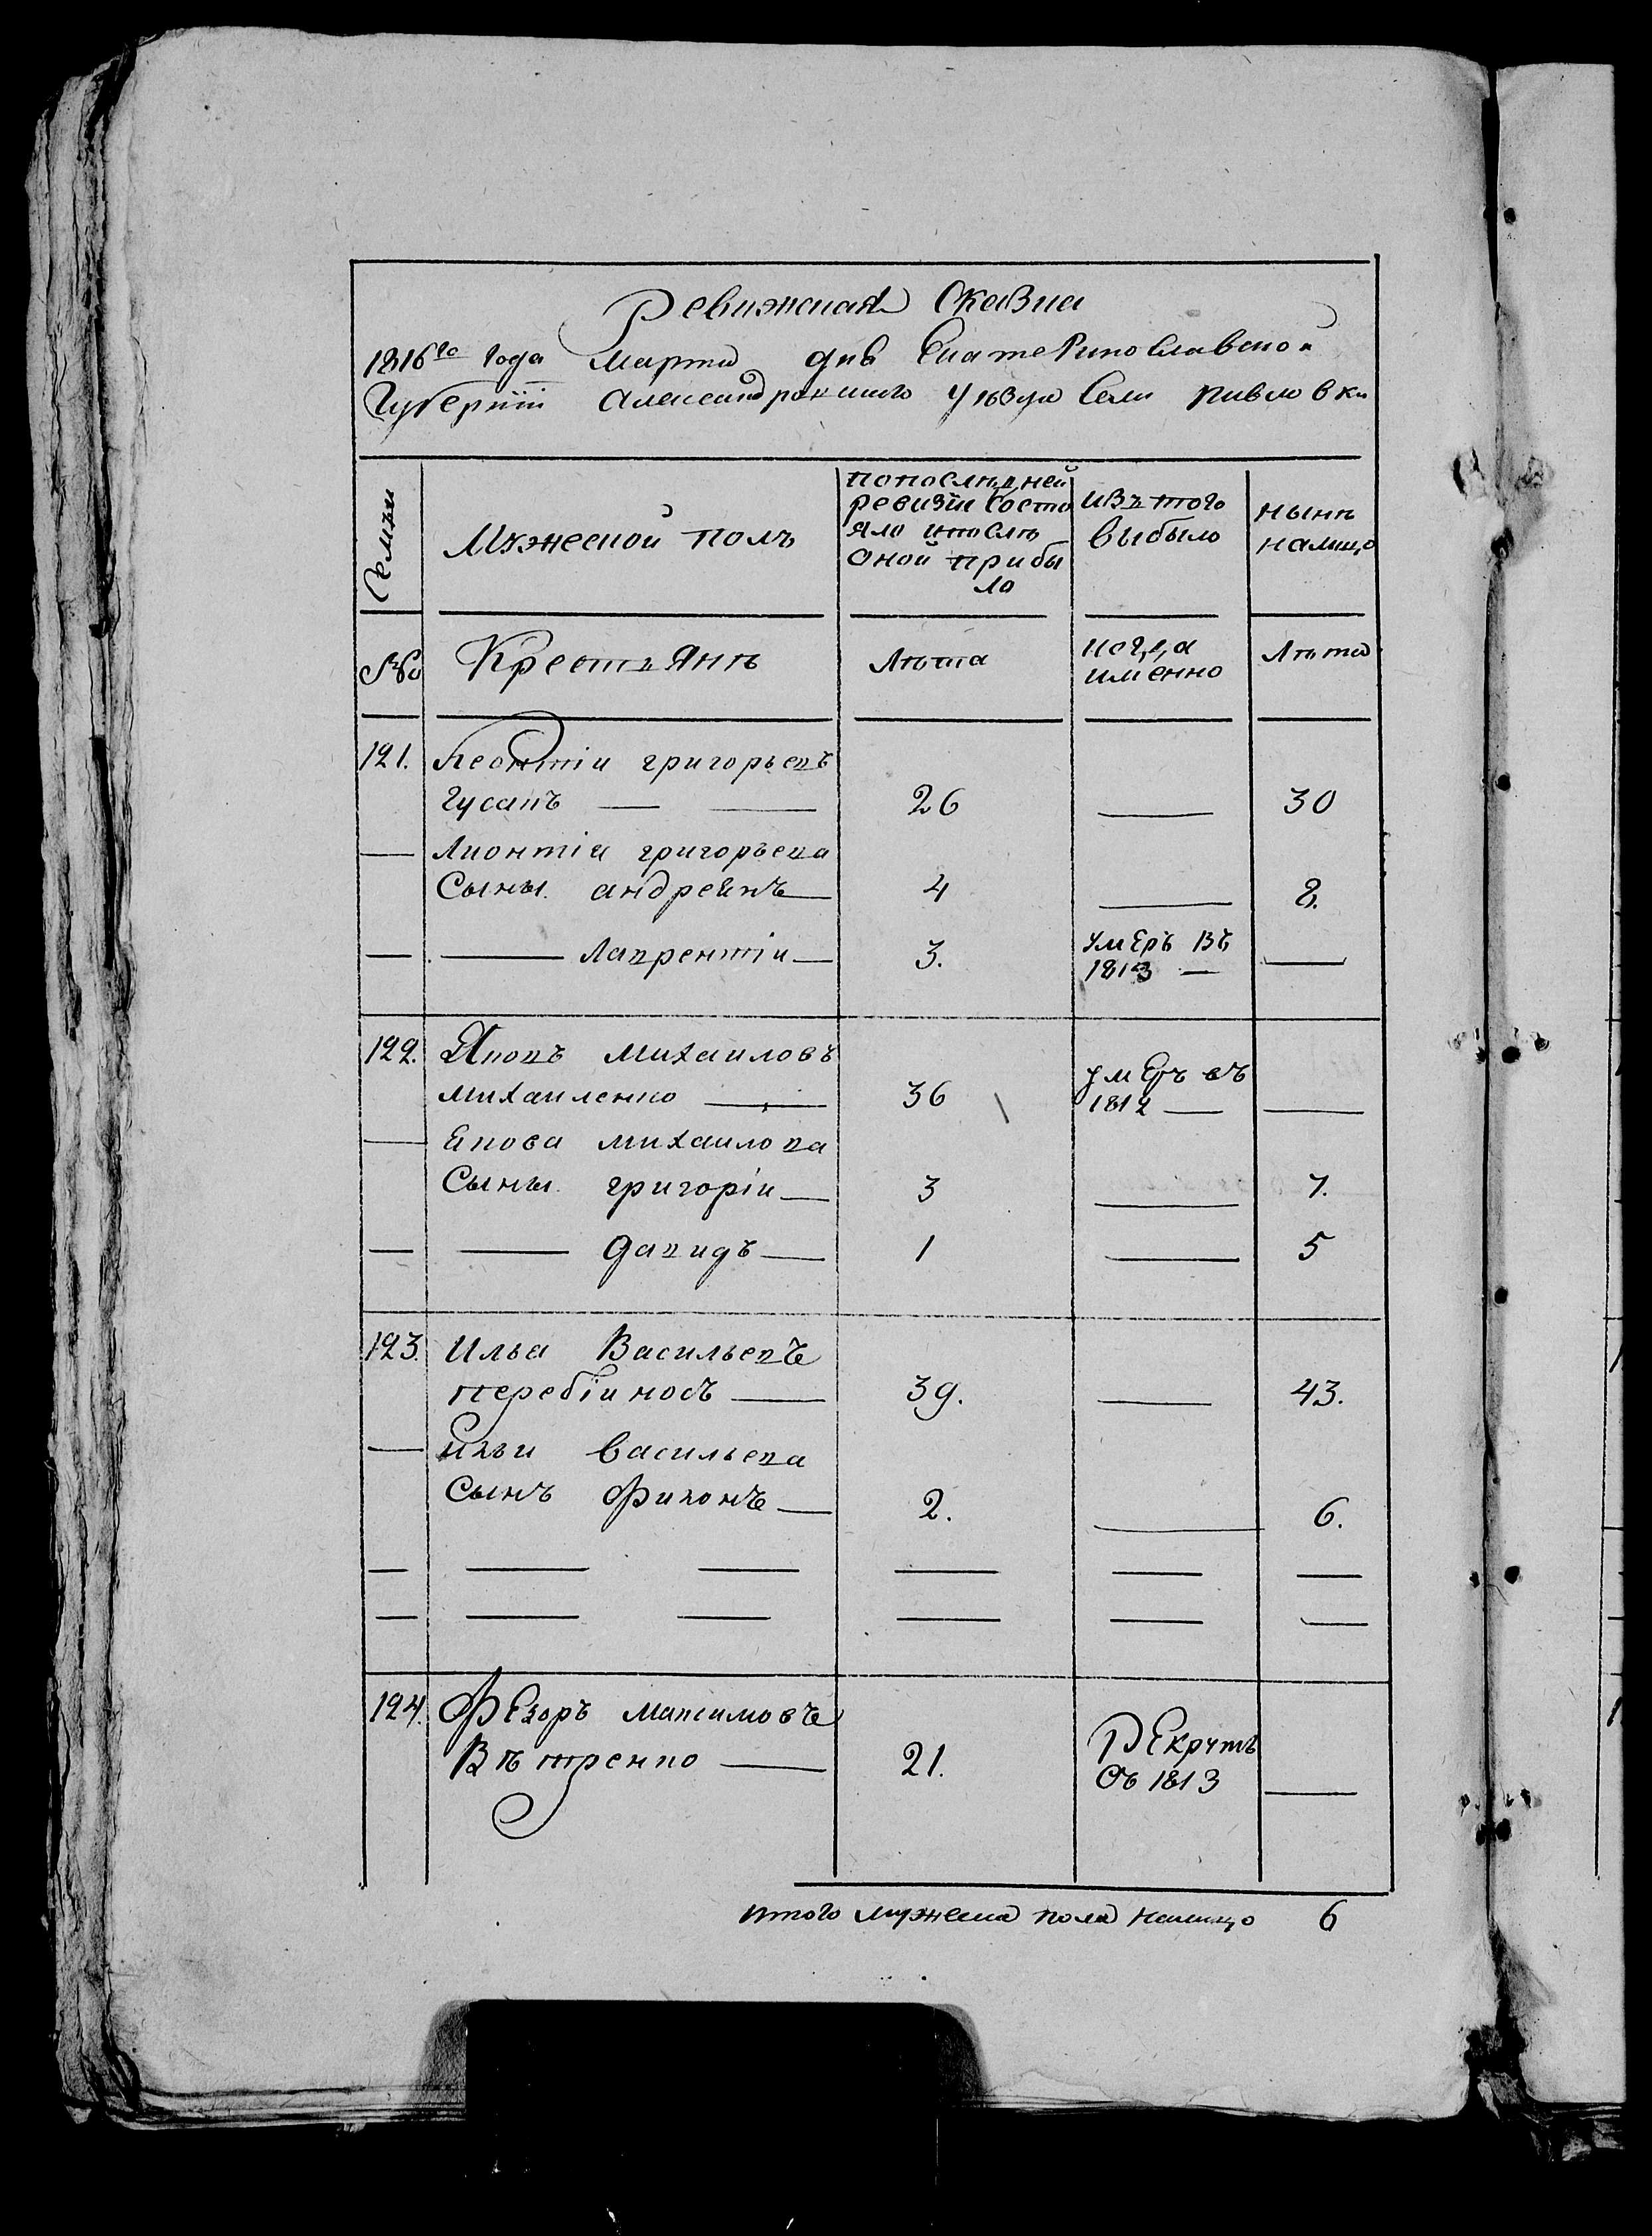 Ревижская Сказка
1816го года марта дня Екатеринославской
Губернïи Александровского уѣзда Села павловки
Семьи
Мужеской полъ
попослѣдней
ревизïи Состо
яло ипослѣ
оной прибы
ло
изъ того
выбыло
нынѣ
налицо
№
Крестьянъ
лѣта
когда
именно
лѣта
121. Леонтïи григорьевъ
Гусакъ — — 26 — 30
— Лионтïи григорьева
Сыны. андреянъ — 4 — 8.
— — Лаврентïи — 3. умеръ въ
1813 — —
122. Яковъ михаиловъ
михаиленко — 36 умеръ въ
1812 — —
— Якова михаилова
Сыны. григорïи — 3 — 7.
— — давидъ — 1 — 5
123. Илья Васильевъ
перебïиносъ — 39. — 43.
— ильи васильева
Сынъ Филонъ — 2. — 6.
— — — — — —
— — — — — —
124. Федоръ максимовъ
Вѣтренко — 21. Рекрутъ
съ 1813 —
итого мужеска пола налицо 6